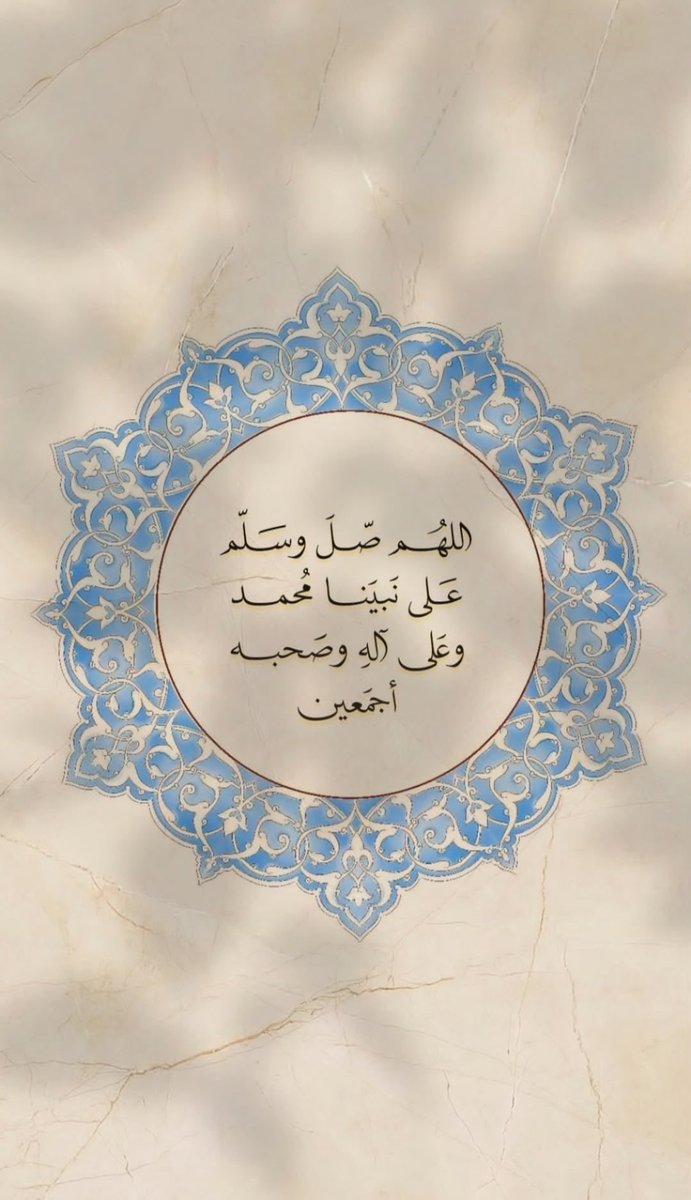 اللهُم صّلَ وسَلّم
عَلى نَبيَنا مُحمد
وعَلى آلهِ وصَحبه
أجمَعين